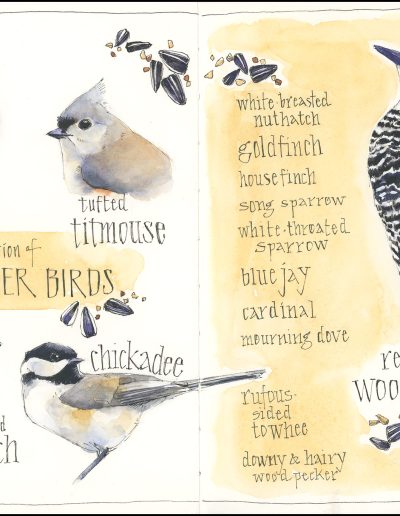 tufted
titmouse
tion of
ER BIRDS
chickadee
d
ch
white-breasted
nuthatch
goldfinch
house finch
song sparrow
white-throated
sparrow
blue jay
cardinal
mourning dove
rufous-
sided
towhee
downy & hairy
woodpecker
re
woo